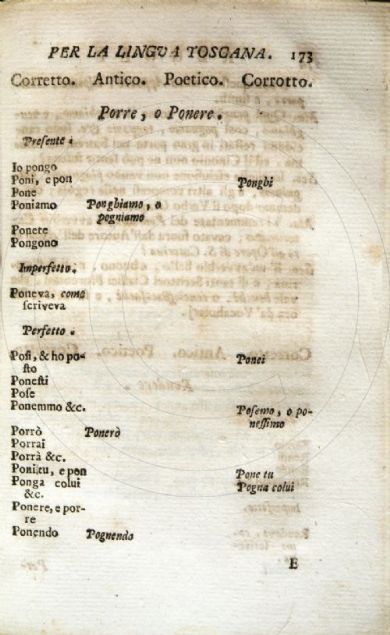 PER LA LINGUA TOSCANA. 173
Corretto. Antico. Poetico. Corrotto.
Porre, o Ponere.
Presente.
Io pongo
Poni, e pon Ponghi
Pone
Poniamo Ponghiamo, o
pogniamo
Ponete
Pongono
Imperfetto.
Poneva, come
scriveva
Perfetto.
Posi, & ho po-
sto Ponei
Ponesti
Pose
Ponemmo &c. Posemo, o po-
nessimo
Porrò Ponerò
Porrai
Porrà &c.
Poni tu, e pon Pone tu
Ponga colui Pogna colui
&c.
Ponere, e por-
re
Ponendo Pognendo
E